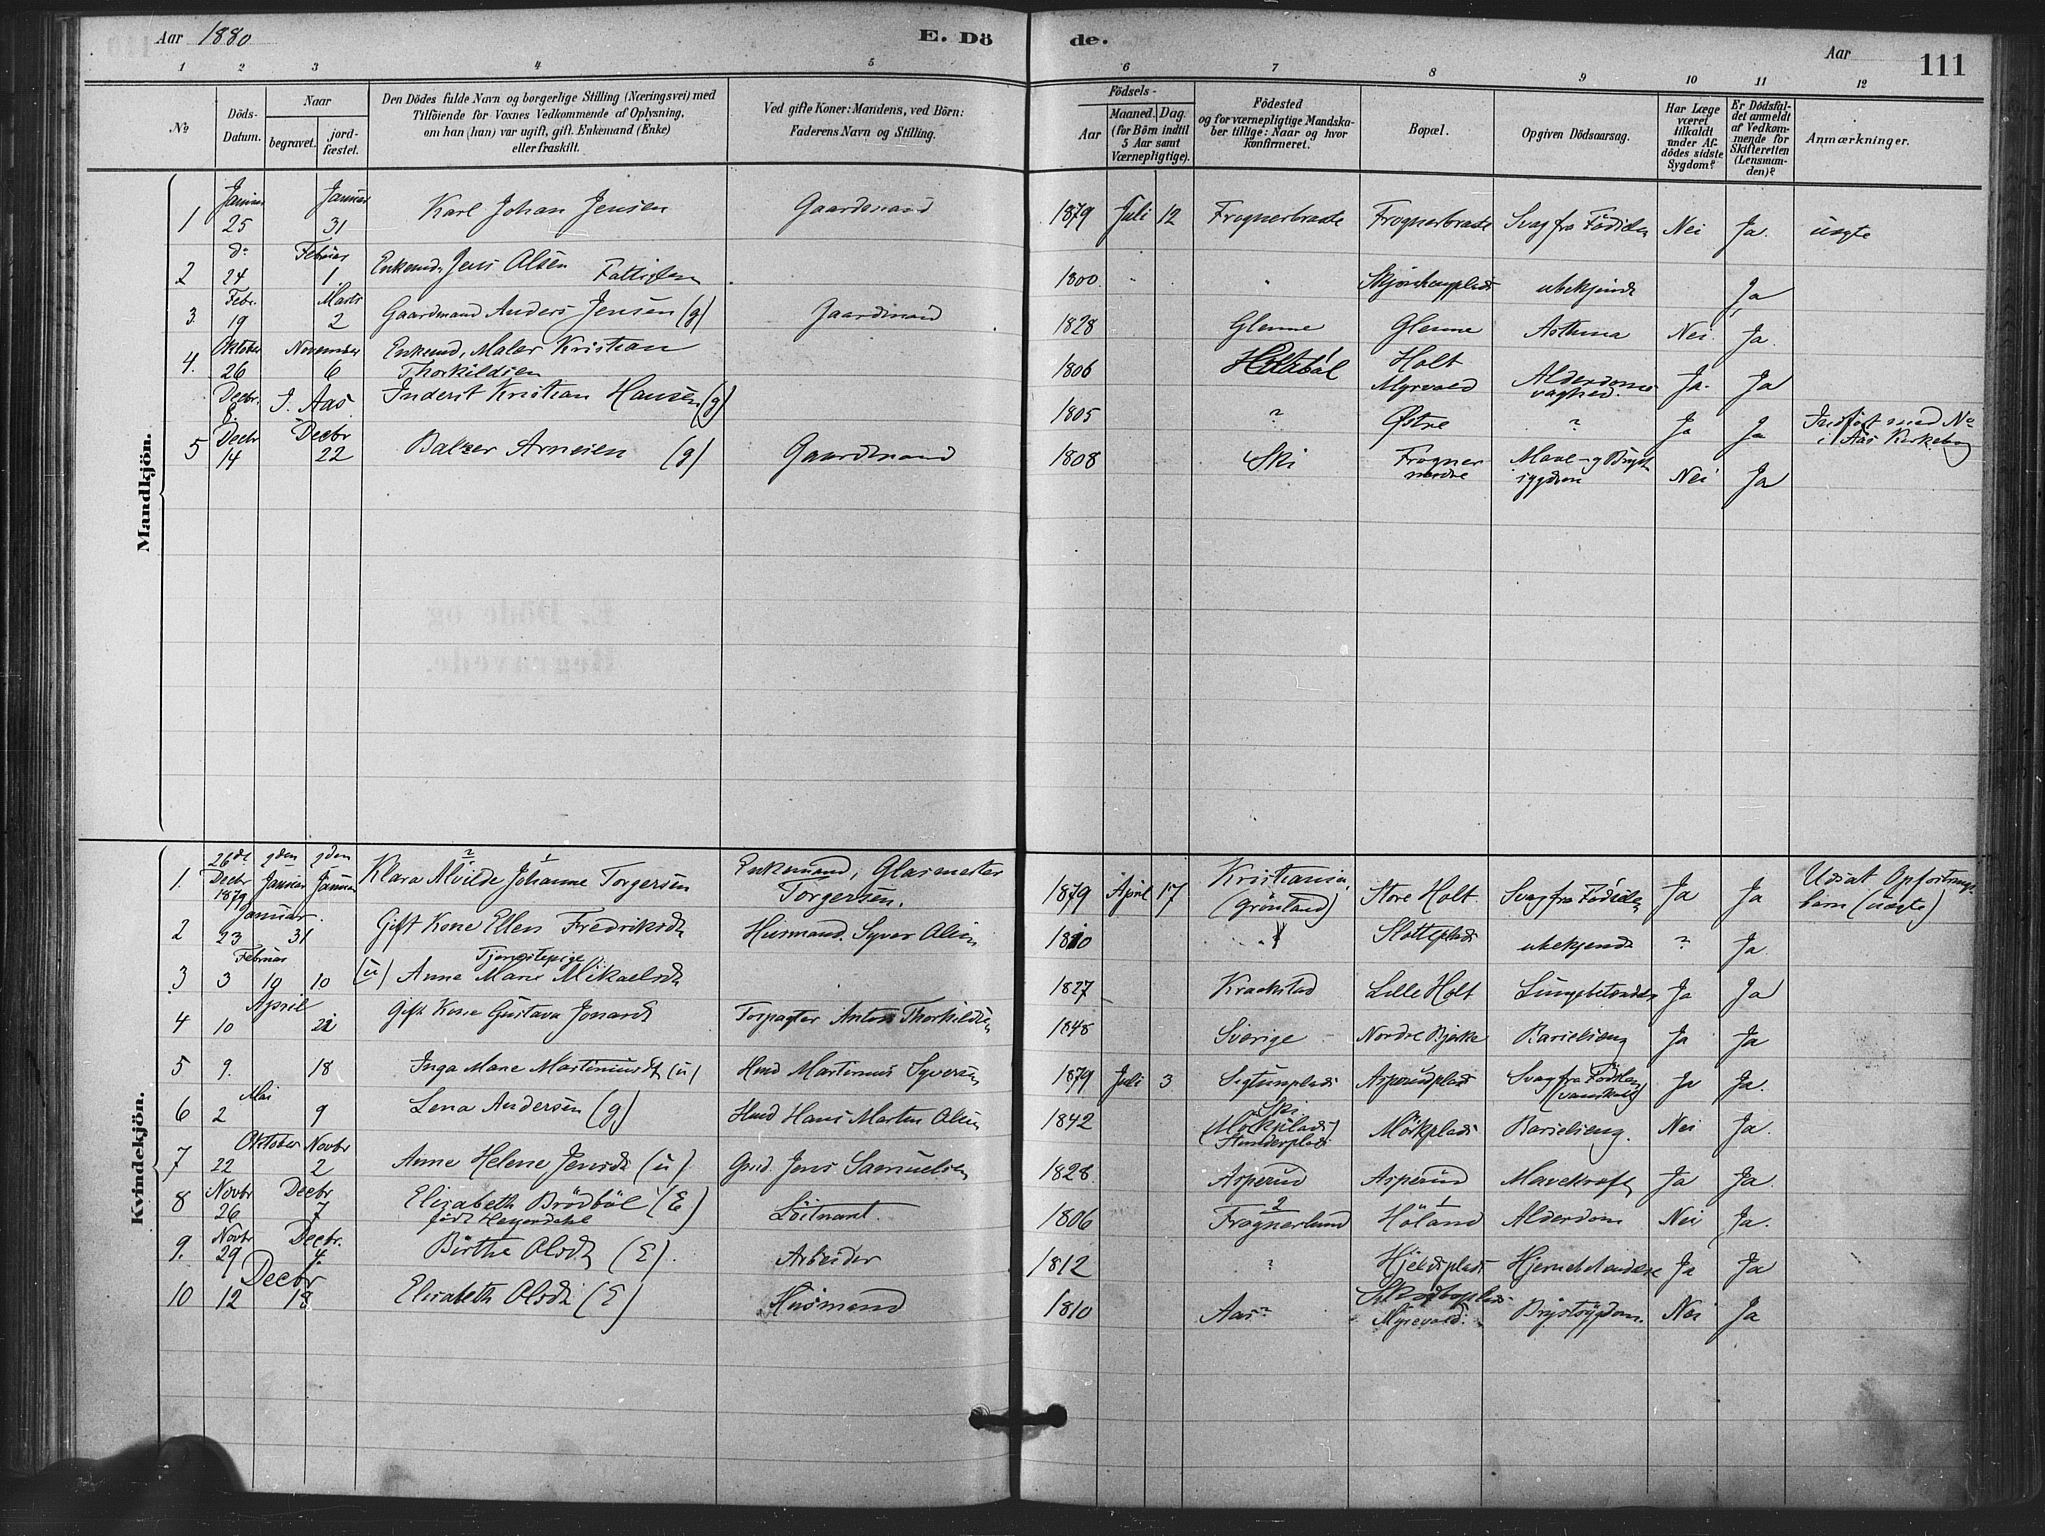 Aar 1880
E. Dö de.
Aar 111
1 2 3 4 5 6 7 8 9 10 11 12
No
Döds-Datum.
Naar
begravet.
jord-fæstet.
Den Dödes fulde Navn og borgerlige Stilling (Næringsvei) med
Tilföiende for Voxnes Vedkommende af Oplysning,
om han (hun) var ugift, gift, Enkemand (Enke)
eller fraskilt.
Ved gifte Koner: Mandens, ved Börn:
Faderens Navn og Stilling.
Födsels-
Aar
Maaned. Dag.
(for Börn indtil
5 Aar samt
Værnepligtige).
Födested
og for værnepligtige Mandska-
ber tillige: Naar og hvor
konfirmeret.
Bopæl.
Opgiven Dödsaarsag.
Har Læge
været
tilkaldt
under Af-
dödes sidste
Sygdom?
Er Dödsfal-
det anmeldt
af Vedkom-
mende for
Skifteretten
(Lensman-
den)?
Anmærkninger.
Mandkjön.
1 Januar 25 Januar 31 Karl Johan Jensen Gaardmand 1879 Juli 12 Frognerbraate Frognerbraate Svag fra Födselen Nei Ja. uægte
2 do 24 Februar 1. Enkemd. Jens Olsen Fattiglem 1800 ubekjendt Ja
3 Febr. 19 Marts 2 Gaardmand Anders Jensen (g) Gaardmand 1828 Glenne Glenne Asthma Nei. Ja.
4. Oktober 26 November 6 Enkemd, Maler Kristian
Thorkildsen 1806 Holt Ja. Ja
Decbr. 8. I. Aas. Inderst Kristian Hansen (g) 1805 ? Myrvold Østre ? Ja Ja Indført med No
i Aas Kirkebog
5 Decbr 14 Decbr 22 Balzer Arnesen (g) Gaardmand 1808 Ski Frogner
nedre Mave- og Bryst
sygdom Nei Ja
Kvindekjön.
1. 26de Decbr 1879 2den Januar 2den Januar Klara Alvilde Johanne Torgersen Enkemand, Glasmester
Torgersen. 1879 April 17 Kristiania
(Grönland) Store Holt Svag fra Födselen Ja Ja Udsat Opfostrings-
barn (uægte)
2 Januar. 23 31 Gift Kone Ellen Fredriksdt Husmand. Syver Olsen 1810 Slottsplads ubekjendt ? Ja.
3 Februar 3 10 10 (u) Tjenestepige
Anne Marie Mikaelsdt 1827 Kraakstad Lille Holt Lungebetændelse Ja Ja
4 April 10 21 Gift Kone Gustava Jonasdt Forpagter Anton Thorkildsen 1848 Sverige Nordre Bjerke Barselseng Ja Ja
5 9. 18 Inga Marie Martiniusdt (u) Hmd Martinius Syversen 1879 Juli 3 Asperudplads Svag fra Födselen
(vanskabt) Ja Ja.
6 Mai 2 9 Lena Andersen (g) Hmd Hans Martin Olsen 1842 Ski
(Mörkplads) Mörkplads Barselseng. Nei Ja.
7 Oktober 22 Novbr 2 Anne Helene Jensdt (u) Gmd. Jens Samuelsen 1828. Asperud Asperud Mavekræft Ja Ja.
8 Novbr 26 Decbr 7 Elisabeth Brödböl (E)
född Heyerdahl Löitnant. 1806 Frognerlund Höland Alderdom Nei Ja.
9. Novbr 29 Decbr. 4. Birthe Olsdt (E). Arbeider 1812 ? Ja Ja
10 Decbr 12 18 Elisabeth Olsdt (E) Husmand 1810 Aas? Myrevold. Brystsygdom. Nei Ja